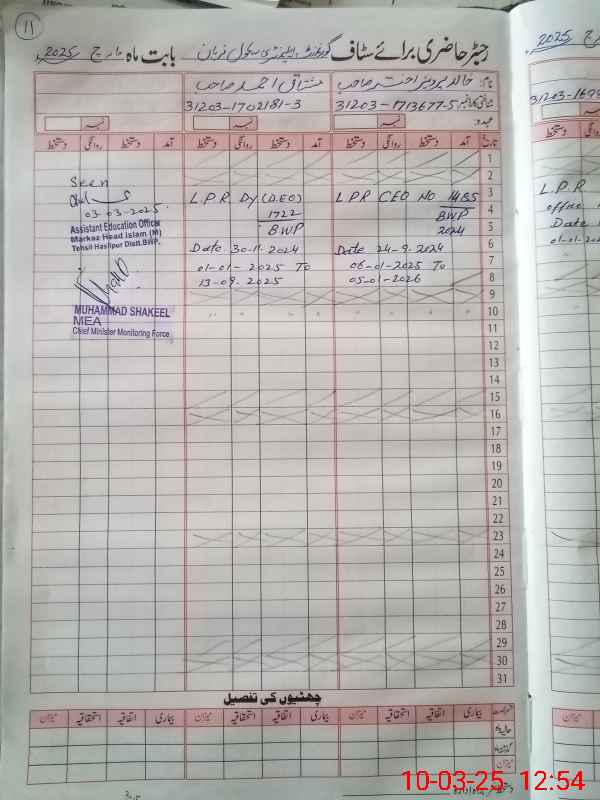 11
رجسٹر حاضری برائے سٹاف گورنمنٹ ایلیمنٹری سکول بابت ماہ مارچ 2025ء
نام: خالد پرویز اختر صاحب
مشتاق احمد صاحب
شناختی کارڈ نمبر 31203-1713677-5
31203-1702181-3
عہدہ:
تاریخ آمد دستخط روانگی دستخط آمد دستخط روانگی دستخط آمد دستخط روانگی دستخط
1
2
3
4
5
6
7
8
9
10
11
12
13
14
15
16
17
18
19
20
21
22
23
24
25
26
27
28
29
30
31
Seen
03-03-2025
Assistant Education Officer
Markaz Head Islam (M)
Tehsil Hasilpur Distt.BWP.
MUHAMMAD SHAKEEL
MEA
Chief Minister Monitoring Force
L.P.R. Dy (D.E.O)
1722
BWP
Date 30-11-2024
01-01-2025 To
13-09-2025
LPR CEO No 1485
BWP
2024
Date 24-9-2024
06-01-2025 To
05-01-2026
چھٹیوں کی تفصیل
بیماری اتفاقیہ استحقاقیہ میزان بیماری اتفاقیہ استحقاقیہ میزان بیماری اتفاقیہ استحقاقیہ میزان
میزان
2025
L.P.R
10-03-25 12:54